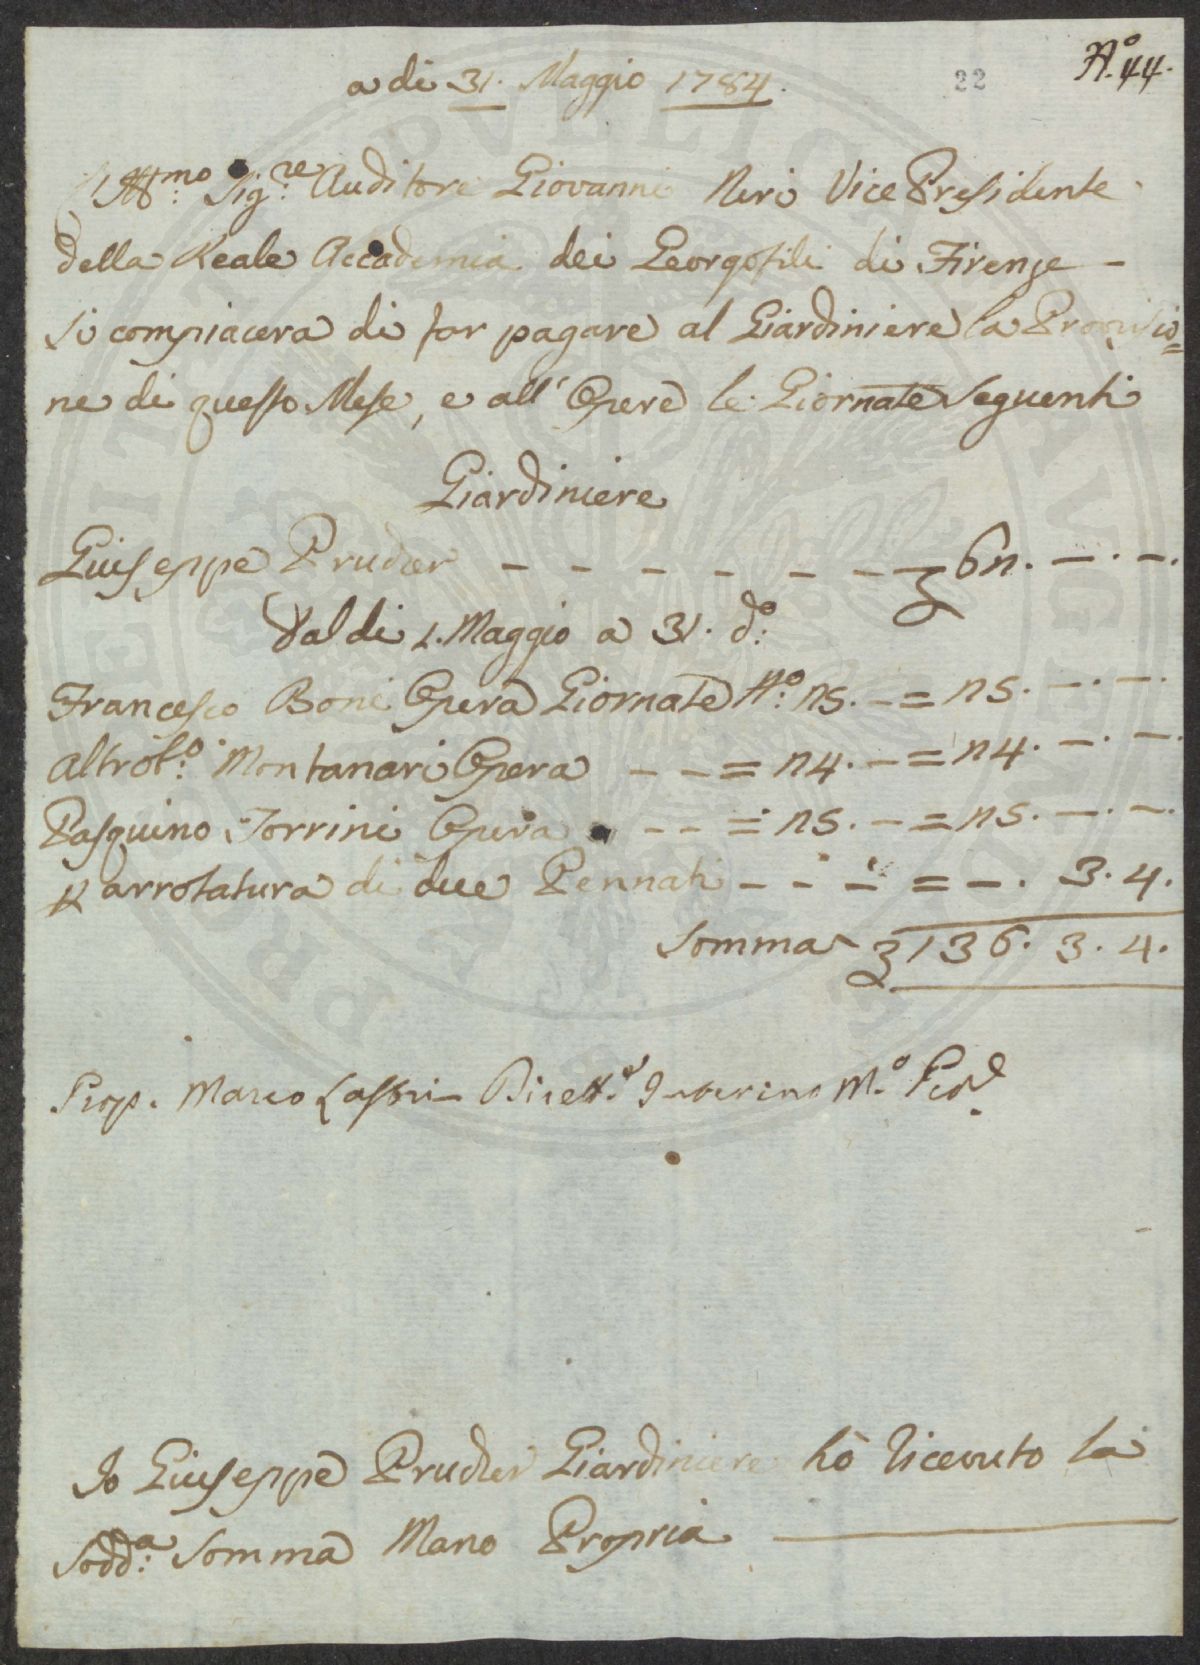 N.º 44.
22
a di 31. Maggio 1784.
Ill.mo Sig.re Auditore Giovanni Neri Vice Presidente
della Reale Accademia dei Georgofili di Firenze –
si compiacerà di far pagare al Giardiniere la Provisio=
ne di questo Mese, e all' Opere le Giornate Seguenti
Giardiniere
Giuseppe Prucker – – – – – – – 62. –. –.
Dal di 1. Maggio a 31. d.º
Francesco Boni Opera Giornate N.º 25. – = 25. –. –.
Altro b.º Montanari Opera – – = 24. – = 24. –. –.
Pasquino Torrini Opera – – = 25. – = 25. –. –.
p arrotatura di due Pennati – – – = –. 3. 4.
Somma 136. 3. 4.
Prop. Marco Lastri Dirett.e Interino M.º P.
Io Giuseppe Prucker Giardiniere hò ricevuto la
Sodd.a Somma Mano Propria
PROSPERITATI PVBLICAE AVGENDAE